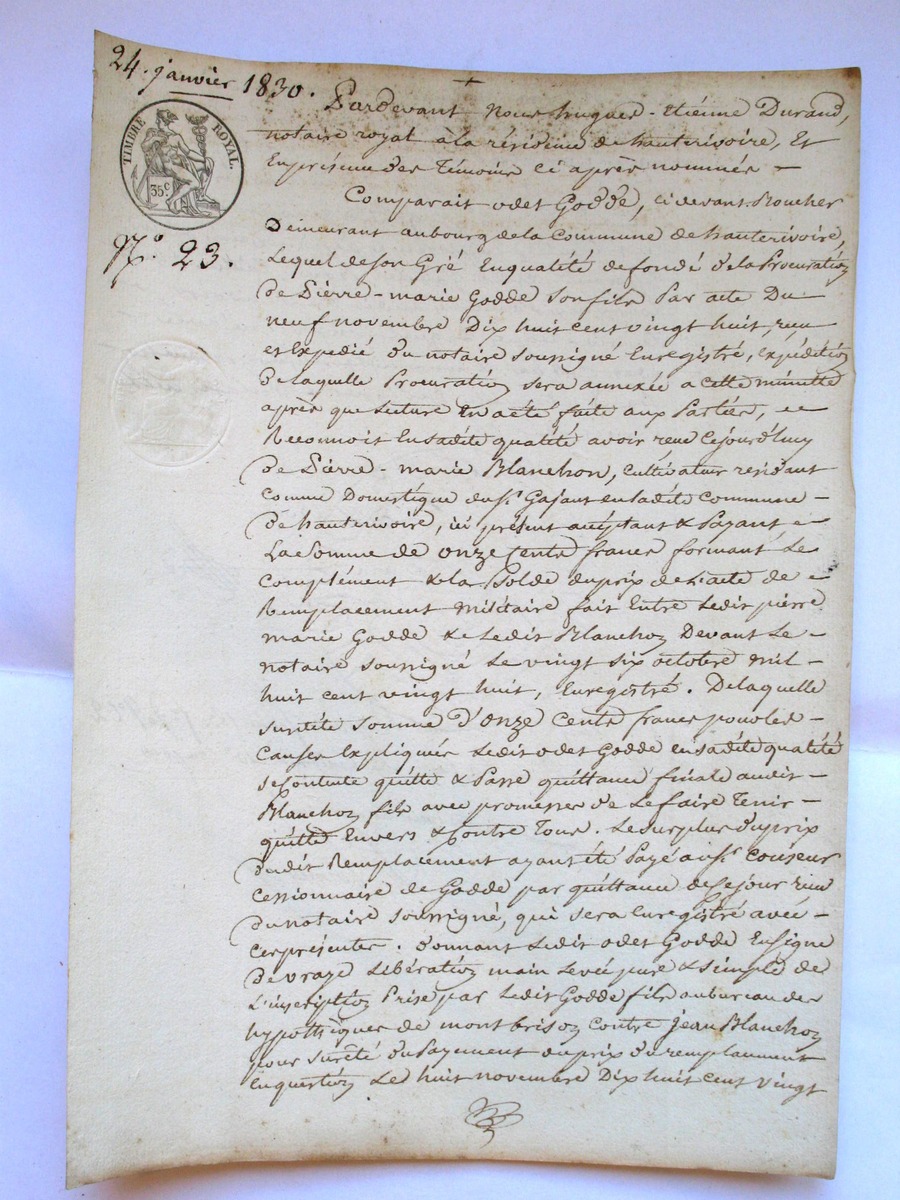 24. janvier 1830.
TIMBRE ROYAL.
35 c
N.o 23.
Pardevant Nous hugues-Etiénne Durand,
notaire royal à la résidence de hauterivoire, Et
En présence des Témoins Ci après nommés -
Comparait odet Goddé, ci devant Boucher
Demeurant au bourg de la Commune de hauterivoire,
Lequel de son Gré En qualité de fondé de la Procuration
De Pierre-marie Godde son fils Par acte Du
neuf novembre Dix huit cent vingt huit, reçu
et Expedié du notaire soussigné Enregistré, Expédition
De laquelle Procuration sera annexée a cette minutte
après que Lecture En a été faite aux Parties,
Reconnoit En sadite qualité avoir reçu Cejourd'huy
De Pierre-marie Blanchon, Cultivateur résidant
comme Domestique du sr. Gajant en ladite commune -
De hauterivoire, ici présent acceptant & Payant
La Somme de onze Cents francs formant Le
complément & la Solde du prix de L'acte de
Remplacement militaire fait Entre Ledit pierre
marie Godde & Ledit Blanchon Devant Le -
notaire soussigné Le vingt six octobre mil -
huit cent vingt huit, Enregistré. De laquelle
susdite somme d'onze cents francs pour les -
Causes Expliquées Ledit odet Godde en sadite qualité
se Contente quitte & Passe quittance finale audit -
Blanchon fils avec promesses de Le faire Tenir -
quitte Envers & Contre Tous. Le surplus du prix
dudit Remplacement ayant été Payé au sr. Couseur
cessionnaire de Godde par quittance de ce jour reçue
du notaire soussigné, qui sera Enregistré avec -
ces présentes. donnant Ledit odet Godde En signe
De vraye Libération main Levée pure & simple de
L'inscription Prise par Ledit Godde fils au bureau des
hypothèques de montbrison Contre Jean Blanchon
pour sureté du Payement du prix du remplacement
En question Le huit novembre Dix huit cent vingt